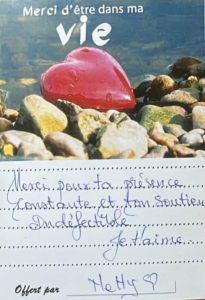 Merci d'être dans ma
vie
Merci pour ta présence
Constante et ton soutien
Indéfectible
Je t'aime..
Offert par Metty ♡